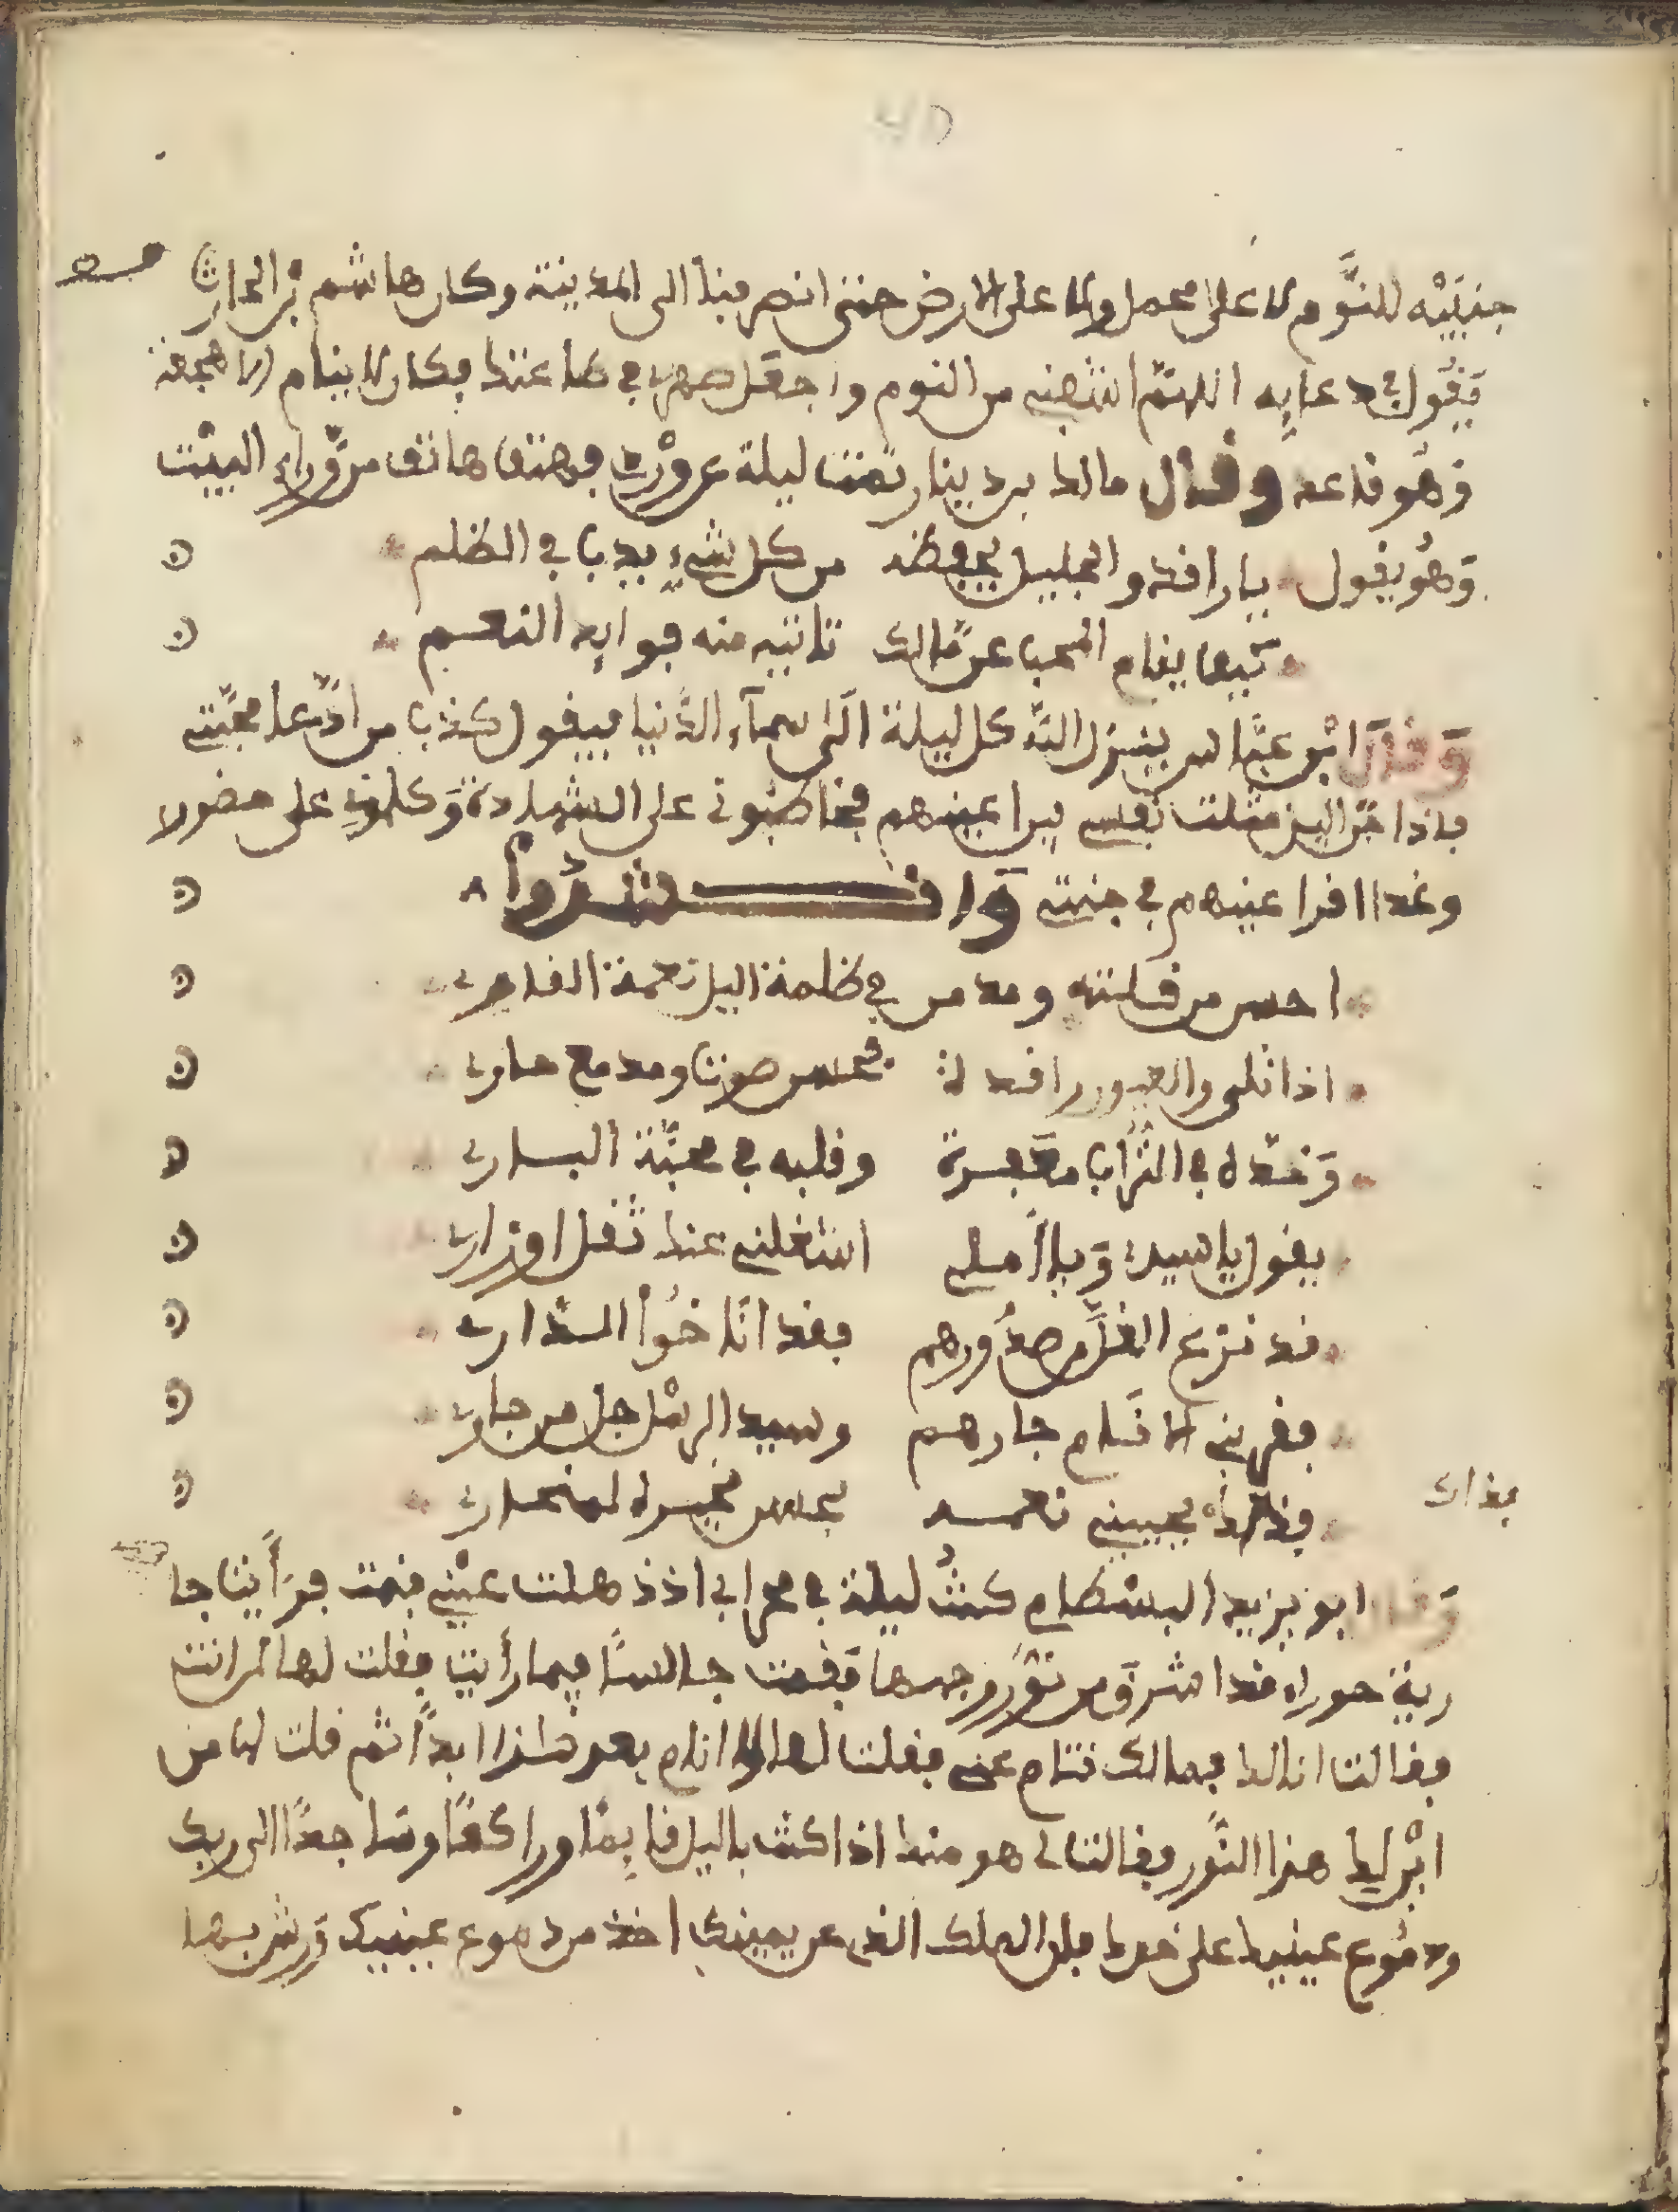 جنبَيْه للنَّوم لا على محمل ولا على الارض حتى انصرفنا الى المدينة وكان هاشم بن الحارث
يَقُول في دعايه اللهمّ اشفني من النوم واجعل سهري في طاعتك فكان لا ينام الا هجعة
وَهُو قاعد وقال مالك بن دينار نمت ليلة عن وِرْدي فهتف هاتف من وَّراء البيت
وَهُو يقول يا راقد والجليل يحفظه من كل شيءٍ يدب في الظلم
كيف ينام المحب عن مّالك تاتيه منه فوايد النعم
وَقال ابْن عبَّاس ينزل اللّه كل ليلة الى سمآء الدُّنيا فيقول كذب من ادّعا محبّتي
فاذا جنّ اليل مثلت نفسي بين اعينهم فخاطبوني على المشاهدة وَكلموني على حضور
وغدا اقر اعينهم في جنتي وَانشدُوا
احسن من قينة ومن مر في ظلمة اليل نغمة القاري
اذا تلى والعيون راقدة بحسن صوت ومدمع جاري
وَخدّه في التُّراب معَفرة وقلبه في محبَّة الباري
يقول يا سيدي وَيا أملي اشغلني عنك ثقل اوزاري
قد نزع الغلَّ من صدُورهم فقد انَاخُوْا الدّاري
فقربني لاقوام جارهم وسيد الرسْل جل من جاري
فذاك يجيبني نعمـ بحسن نحيراه لمختاري
بذاك
وَقال ابو يزيد البسْطامي كنتُ ليلة في محرابي اذ ذهلت عيْني فنمت فرَأيت جا
رية حوراء قد اشرق من نوُر وجهها فقمت جالسًا فيما رأيت فقلت لها لمن انت
فقالت انا لك فما لك تنام عني فقلت لها والله لا انام بعد هـذا ابدًا ثم قلت لها من
ايْن لك هذا النُّور فقالت لي هو منك اذا كنت باليل قايمًا وراكعًا وسَاجدًا الى ربك
ودمُوع عينيك على خدك فان الملك الذي عن يمينك اخذ من دموع عينيك وَرش بها